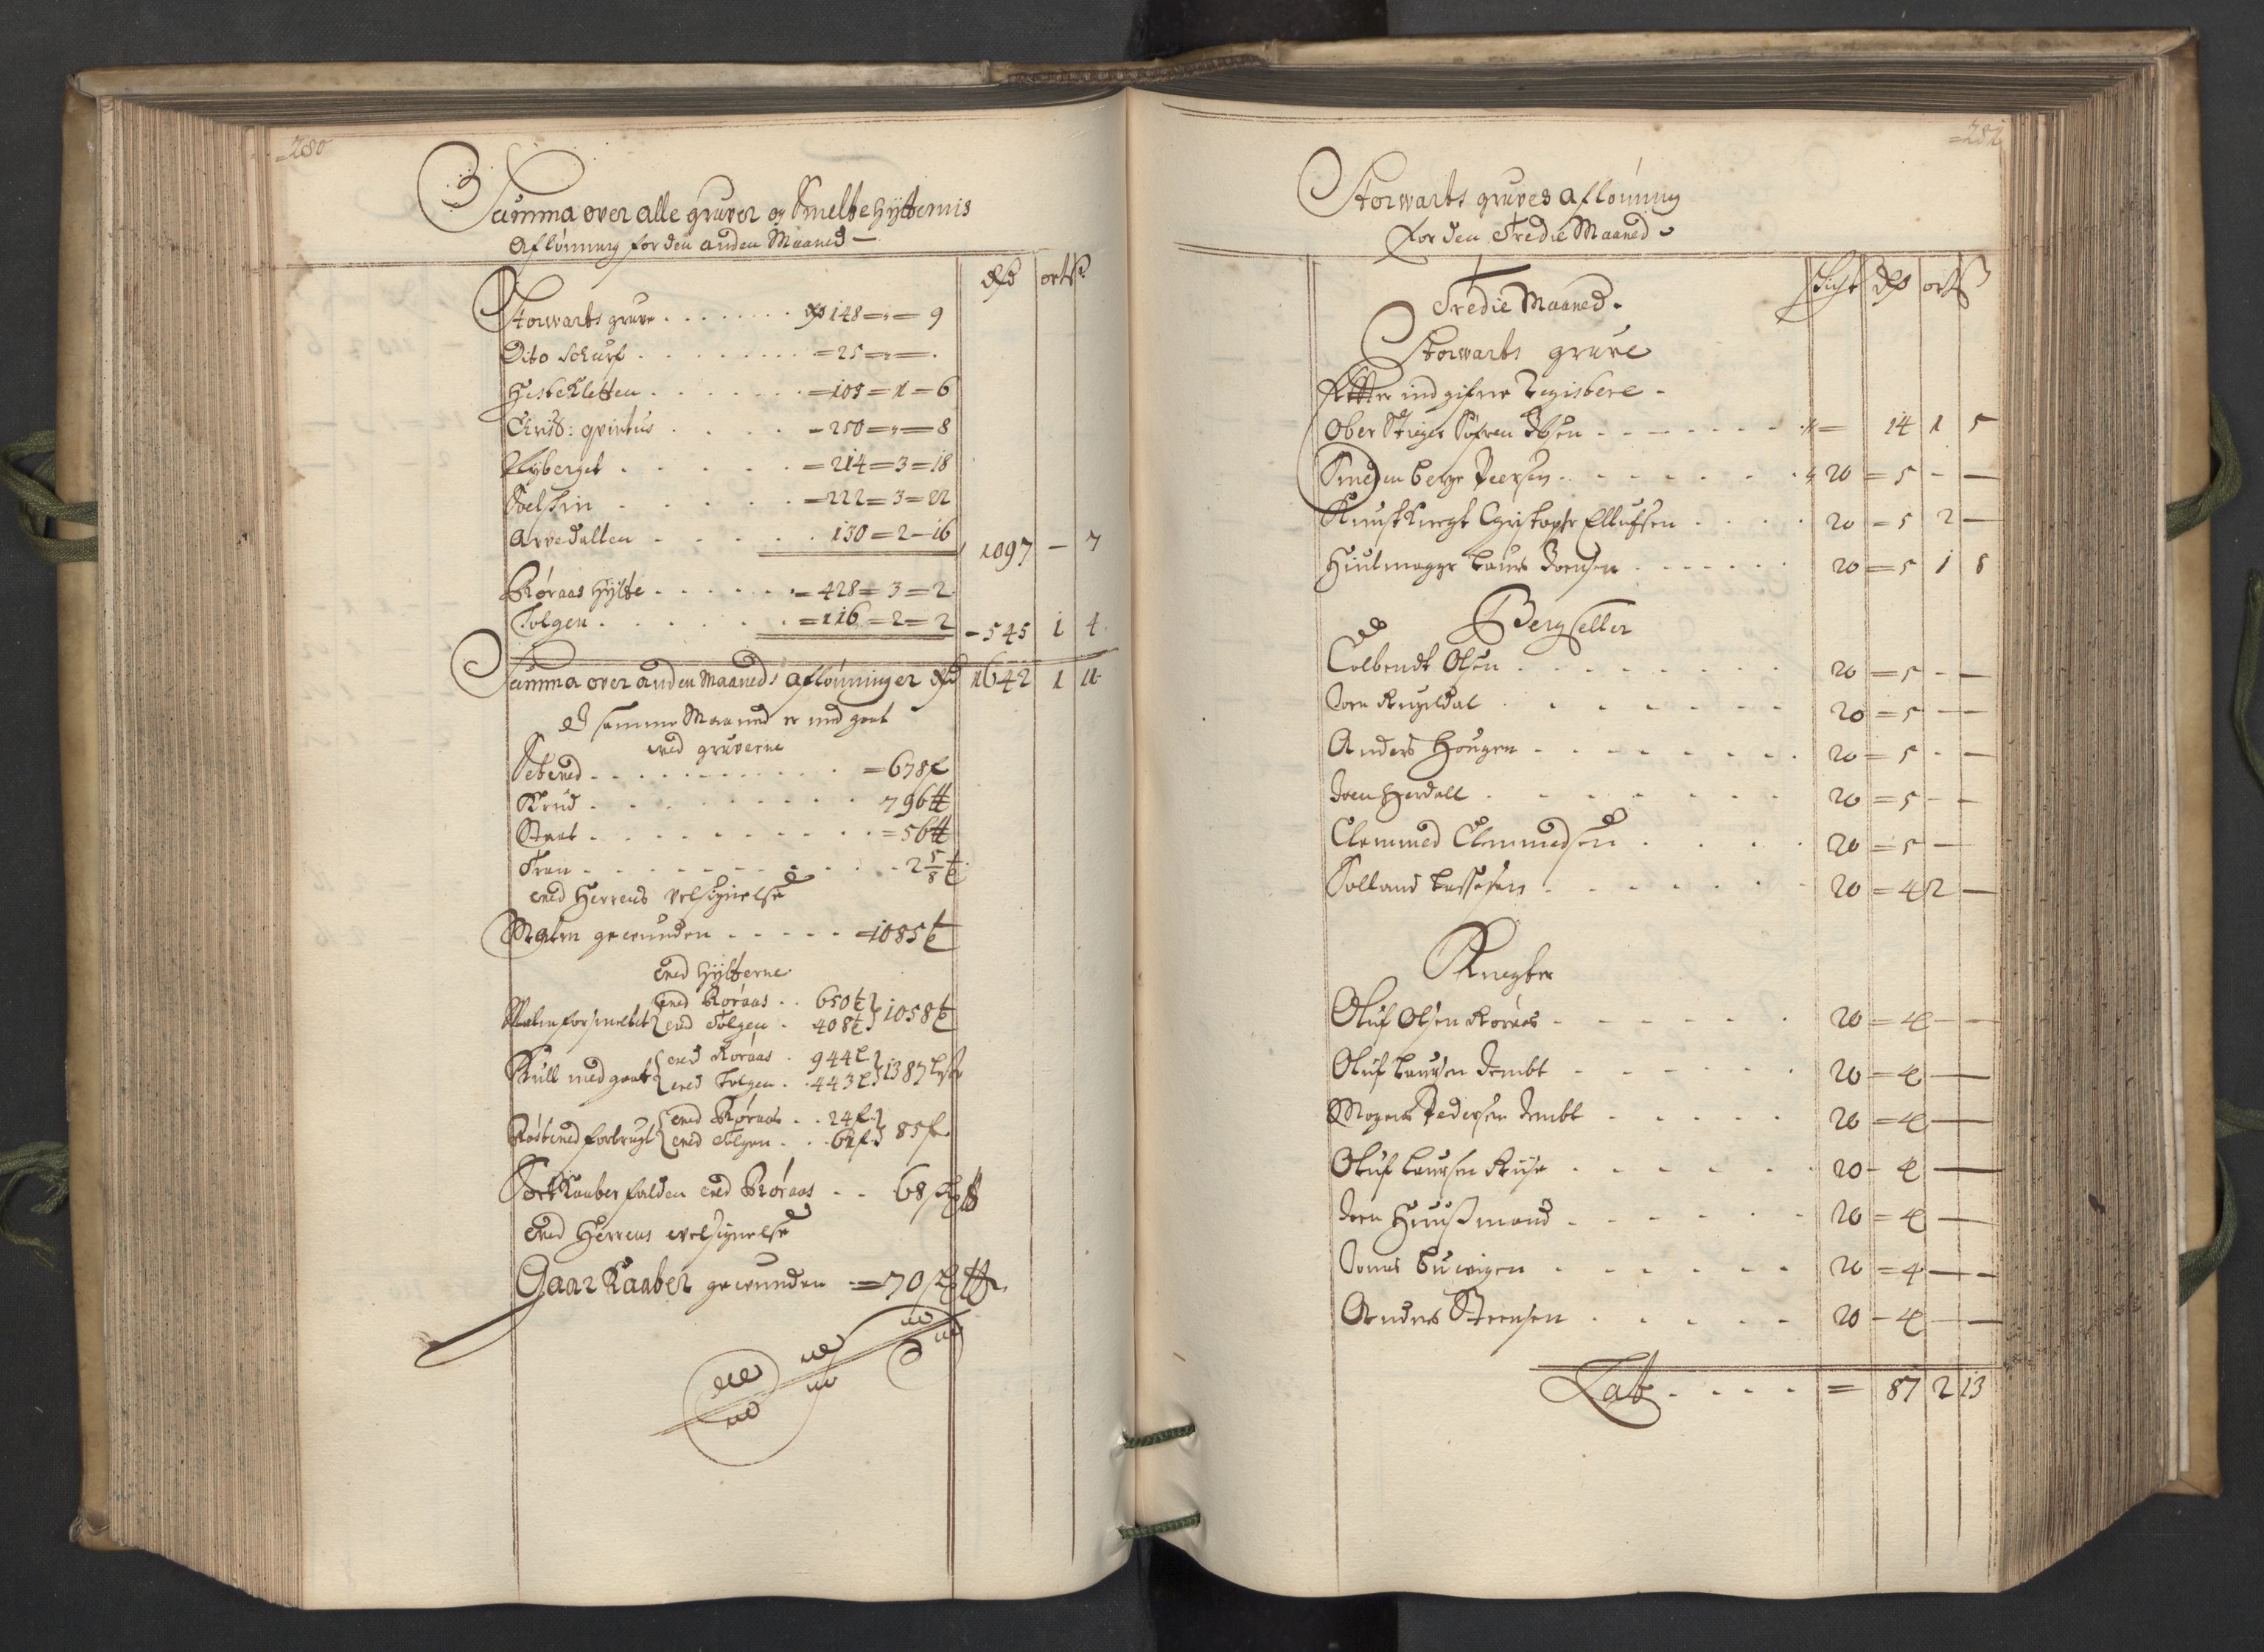 280
Summa over alle gruver og Smelte hÿtternis
Aflønning for den anden Maaned —
dlr ort ß
Storwarts gruve . . . . . . . dlr 148 = „ = 9
Dito Schurf . . . . . . . . = 25 = „ = .
Hestekletten . . . . . . . = 105 = 1 = 6
Christ: qvintus . . . . . = 250 = „ = 8
Nÿberget . . . . . . = 214 = 3 = 18
Soelskin . . . . . . = 222 = 3 = 22
Arvedallen . . . . . . 130 = 2 - 16
1097 — 7
Røraas Hÿtte . . . . . . = 428 = 3 = 2
Tolgen . . . . . . . = 116 = 2 = 2
= 545 1 4
Summa over anden Maaneds aflønninger dlr 1642 1 11
I samme Maaned er med gaat
ved gruverne
Setved . . . . . . . . . . = 678 f
Krud . . . . . . . . . 796 ℔
Staal . . . . . . . . . . = 56 ℔
Tran . . . . . . . . . . 2 5/8 t
ved Herrens velsignelse
Malm gewunden . . . . . = 1085 t
ved Hÿtterne
Malm forsmeltet { ved Røraas . . 650 t } 1058 t
{ ved Tolgen . 408 t }
Kull medgaat { ved Røraas . 944 l } 1387 lester
{ ved Tolgen . . 443 l }
Rostved forbrugt { ved Røraas . . 24 f } 85 f
{ ved Tolgen . . . 61 f }
Sort Kaaber falden ved Røraas . . 68 s℔
ved Herrens velsignelse
Gaar Kaaber gewunden . = 70 s℔
281
Storwarts gruves aflønning
for den Tredie Maaned
Schicht dlr ort ß
Tredie Maaned.
Storwarts gruve
Efter indgifne Registere -
Ober Stiger Søfren Ibsen . . . . . . . . „ = 14 1 5
Smeden Berge Peersen . . . . . . . „ 20 = 5 - —
Kunstknegt Christopher Ellufsen . . . . 20 = 5 2 —
Hiulmager Laurs Joensen . . . . . . . 20 = 5 1 8
Bergseller
Colbendt Olsen . . . . . . . . 20 = 5 - —
Joen Rugeldal . . . . . . . 20 = 5 - —
Anders Hougen . . . . . . . . 20 = 5 - —
Joen Herdall . . . . . . . 20 = 5 - —
Clemmed Clemmedsen . . . . 20 = 5 —
Solland Lassesen . . . . . . . 20 = 4 2 —
Knegter
Oluf Olsen Røraas . . . . . . . 20 = 4 — —
Oluf Laursen Jembt . . . . . . 20 = 4 —
Mogens Pedersen Jembt . . . . . 20 = 4 —
Oluf Laursen Riise . . . . . . 20 - 4 —
Joen Huußmand . . . . . . 20 = 4 —
Jonas Buwigen . . . . . . 20 = 4 — —
Anders Steensen . . . . . 20 - 4 — —
Lat . . . . = 87 2 13